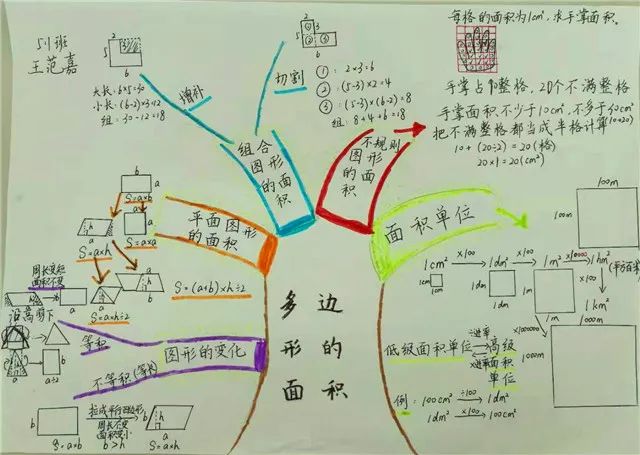 511班
王范嘉
5
2
3
6
大长:6×5=30
小长:(6-2)×3=12
组:30-12=18
增补
切割
2
3
5
6
①:2×3=6
②:(5-3)×2=4
③:(5-3)×(6-2)=8
组:8+4+6=18
组合图形的面积
每格的面积为1cm²,求手掌面积。
手掌占10整格,20个不满整格
手掌面积不少于10cm²,不多于30cm²
(10+20)
把不满整格都当成半格计算
10+(20÷2)=20(格)
20×1=20(cm²)
不规则图形的面积
平面图形的面积
b
a
S=a×b
a
a
S=a×a
h
a
S=a×h
S=a×h÷2
S=(a+b)×h÷2
周长变短
面积不变
面积单位
100m
100m
1cm² ×100 1dm² ×100 1m² ×10000 1hm²
1cm
1dm
1m
×100
1km²
×1000000
1000m
1000m
低级面积单位 ÷进率 ×进率 高级面积单位
例:100cm² ÷100 1dm²
1dm² ×100 100cm²
图形的变化
等积
不等积(等长)
a÷2
b
拉成平行四边形
周长不变
面积变小
b>h
S=a×b
S=a×h
多边形的面积